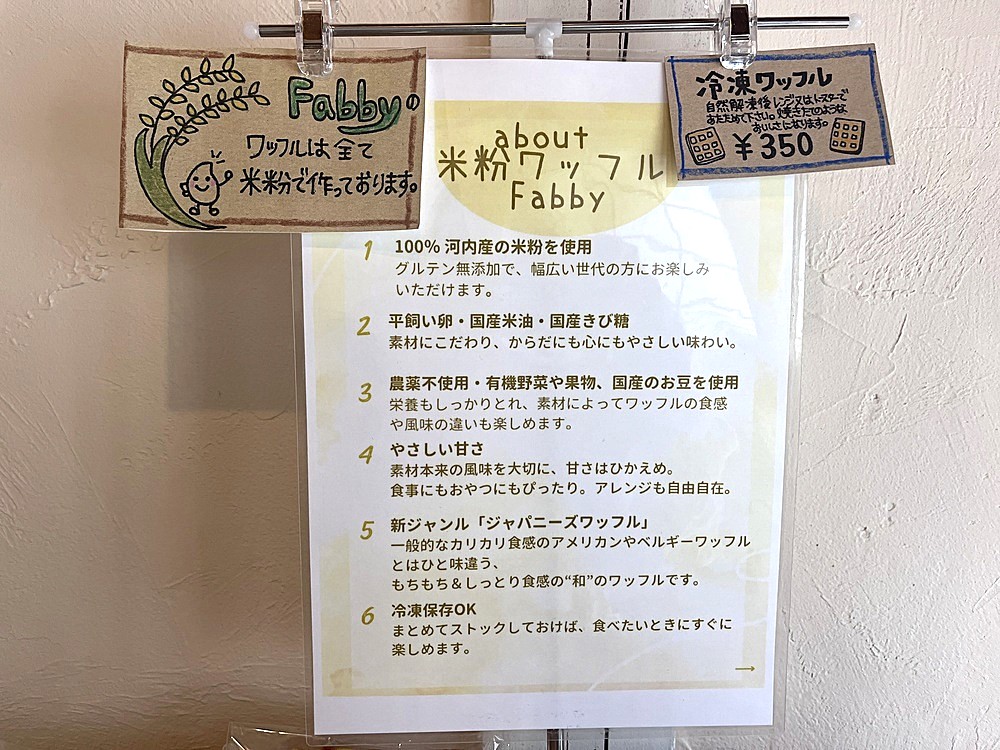 Fabbyの
ワッフルは全て
米粉で作っております。
冷凍ワッフル
自然解凍後レンジ又はトースターで
あたため下さい。焼きたてのような
おいしさになります。
¥350
about
米粉ワッフル
Fabby
1 100% 河内産の米粉を使用
グルテン無添加で、幅広い世代の方にお楽しみ
いただけます。
2 平飼い卵・国産米油・国産きび糖
素材にこだわり、からだにも心にもやさしい味わい。
3 農薬不使用・有機野菜や果物、国産のお豆を使用
栄養もしっかりとれ、素材によってワッフルの食感
や風味の違いも楽しめます。
4 やさしい甘さ
素材本来の風味を大切に、甘さはひかえめ。
食事にもおやつにもぴったり。アレンジも自由自在。
5 新ジャンル「ジャパニーズワッフル」
一般的なカリカリ食感のアメリカンやベルギーワッフル
とはひと味違う、
もちもち＆しっとり食感の“和”のワッフルです。
6 冷凍保存OK
まとめてストックしておけば、食べたいときにすぐに
楽しめます。
→